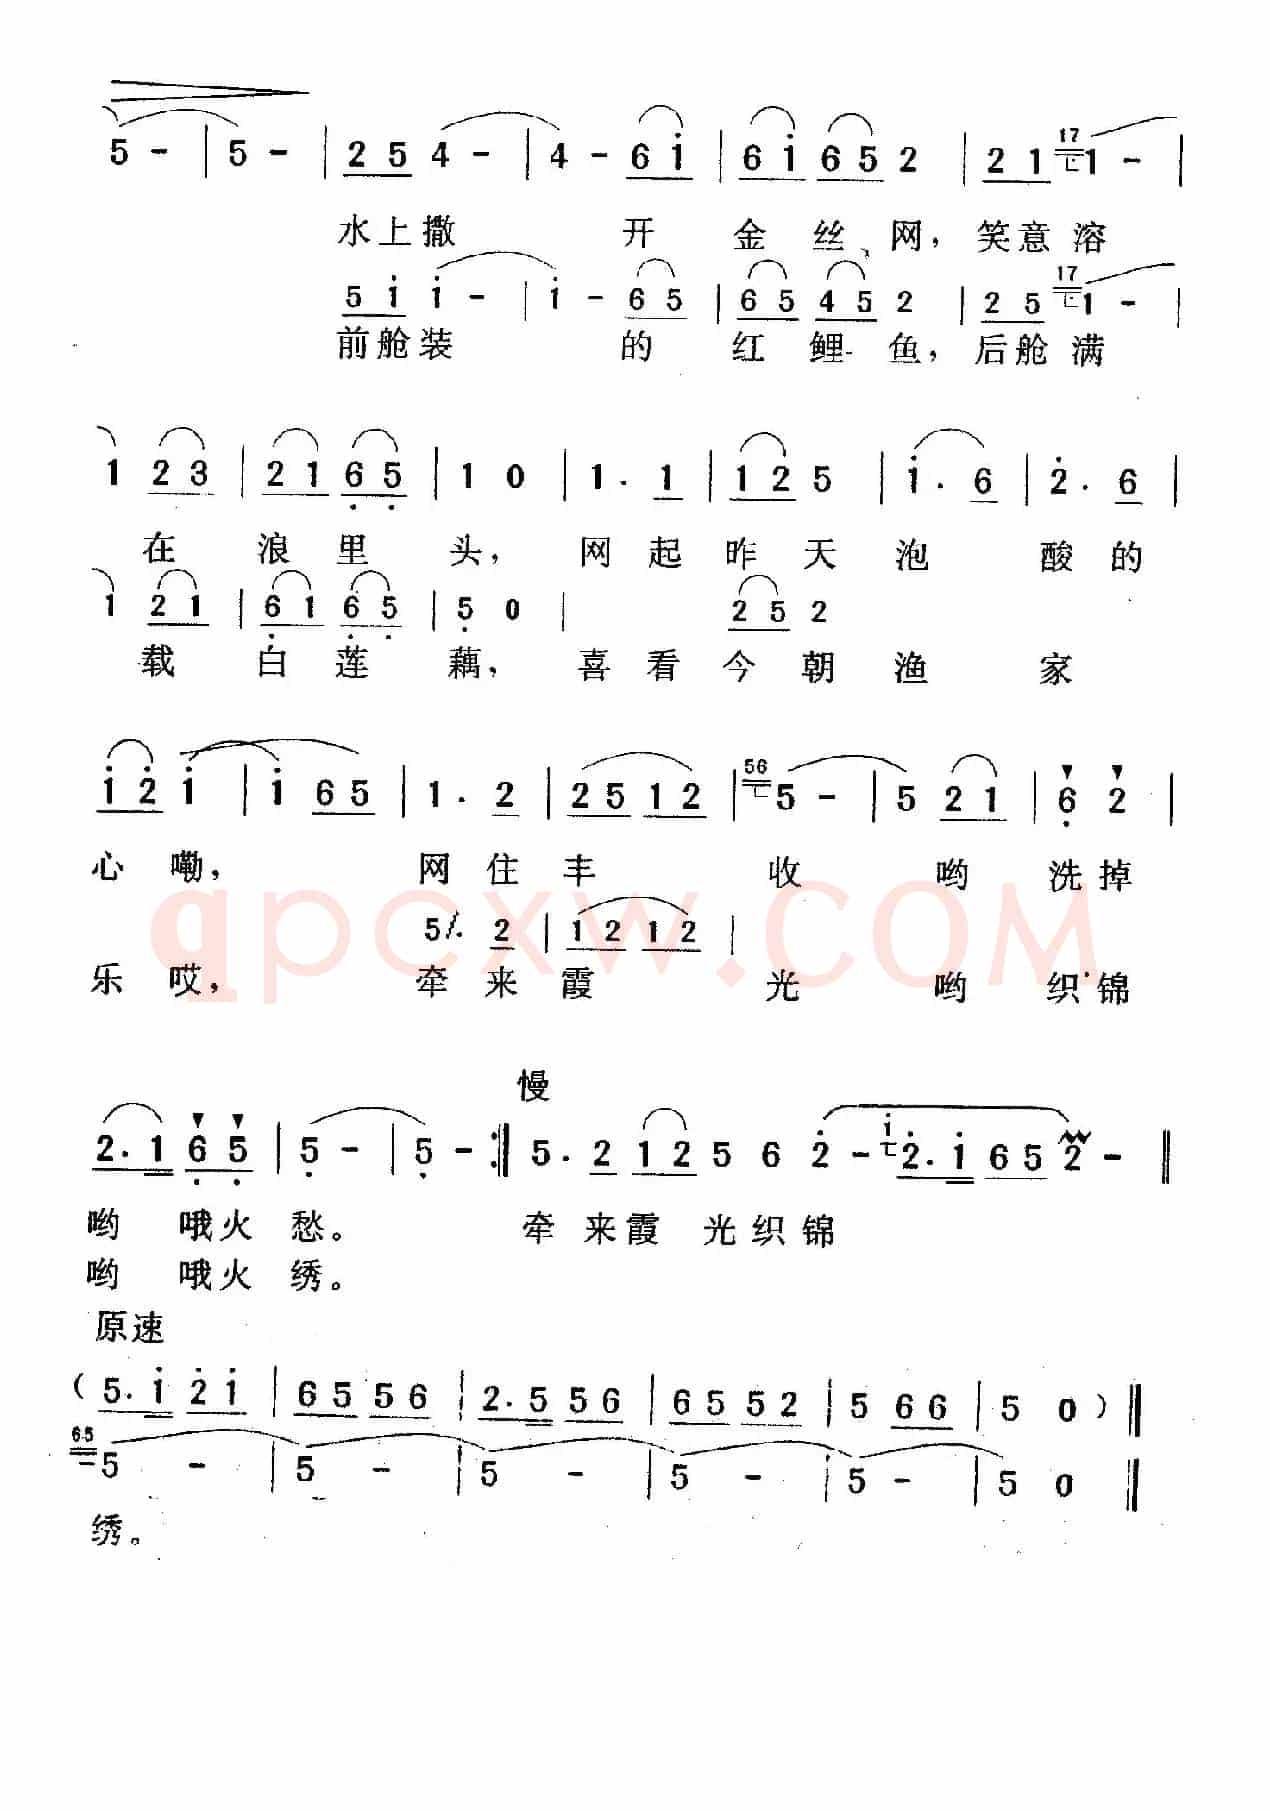 5 - | 5 - | 2 5 4 - | 4 - 6 i | 6 i 6 5 2 | 2 1 17 1 - |
水上撒 开 金 丝 网, 笑意溶
5 i i - | i - 6 5 | 6 5 4 5 2 | 2 5 17 1 - |
前舱装 的 红 鲤 鱼, 后舱满
1 2 3 | 2 1 6 5 | 1 0 | 1 . 1 | 1 2 5 | i . 6 | 2 . 6 |
在 浪 里 头, 网 起 昨 天 泡 酸的
1 2 1 | 6 1 6 5 | 5 0 | 2 5 2
载 白 莲 藕, 喜 看 今 朝 渔 家
i 2 i | i 6 5 | 1 . 2 | 2 5 1 2 | 56 5 - | 5 2 1 | 6 2 |
心 嘞, 网 住 丰 收 哟 洗掉
qpcxw.COM
5 . 2 | 1 2 1 2 |
乐 哎, 牵 来 霞 光 哟 织锦
慢
2 . 1 6 5 | 5 - | 5 - :| 5 . 2 1 2 5 6 2 - i 2 . i 6 5 2 - ||
哟 哦火 愁。 牵 来霞 光织锦
哟 哦火 绣。
原速
( 5 . i 2 i | 6 5 5 6 | 2 . 5 5 6 | 6 5 5 2 | 5 6 6 | 5 0 ) ||
65 5 - | 5 - | 5 - | 5 - | 5 - | 5 0 ||
绣。